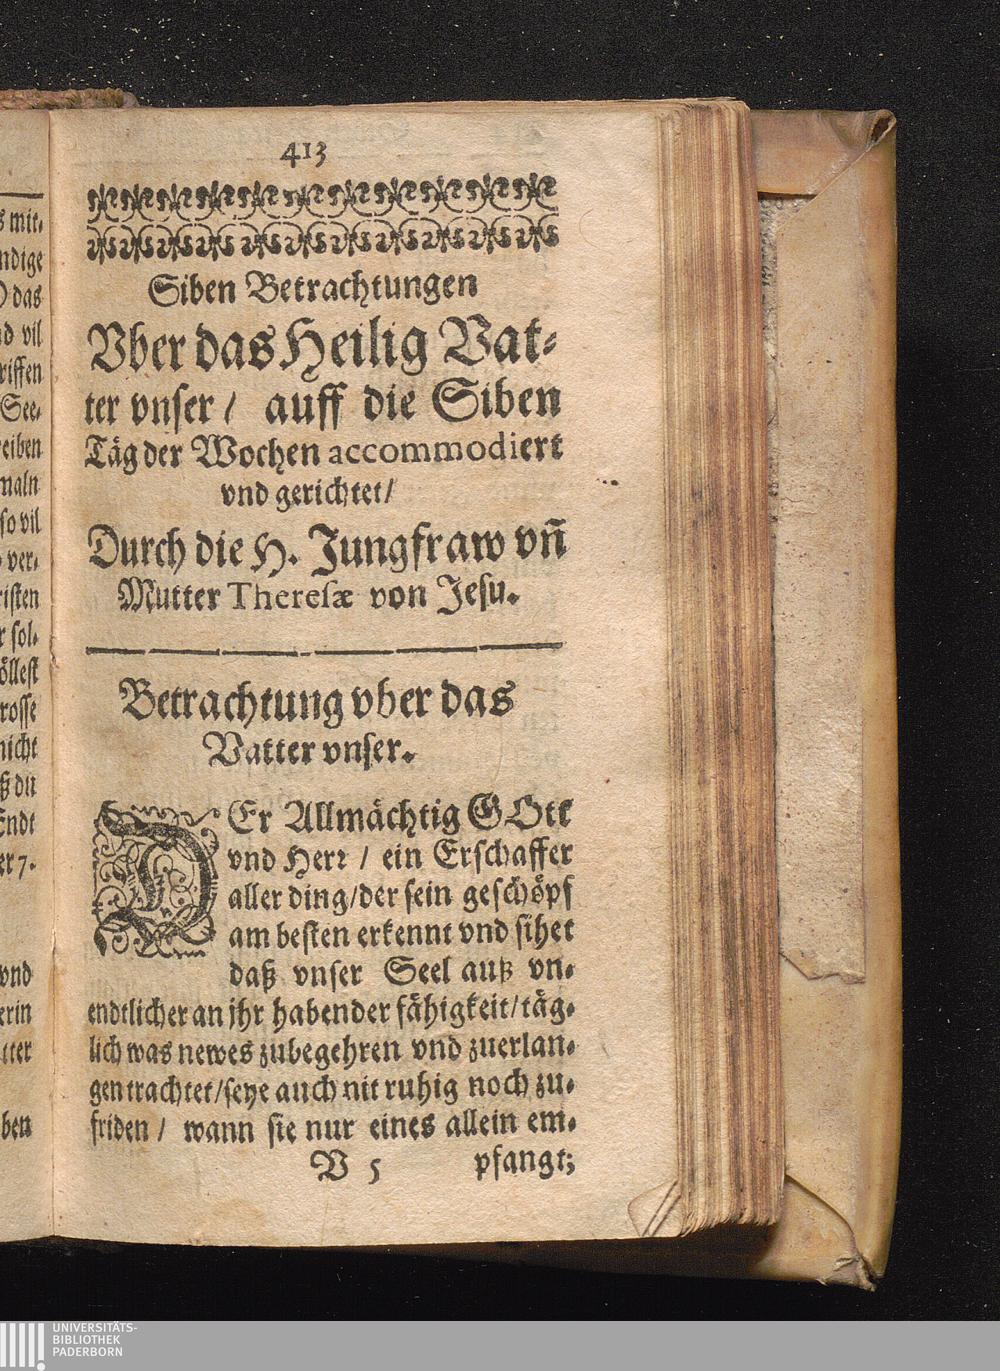 s mit⸗
ndige
das
nd vil
riffen
See⸗
eiben
maln
so vil
ver⸗
risten
r sol⸗
öllest
rosse
nicht
ß du
Endt
er 7.
vnd
erin
tter
ben
413
Siben Betrachtungen
Vber das Heilig Vat⸗
ter vnser / auff die Siben
Täg der Wochen accommodiert
vnd gerichtet/
Durch die H. Jungfraw vn̄
Mutter Theresæ von Jesu.
Betrachtung vber das
Vatter vnser.
DEr Allmächtig GOtt
vnd Herr / ein Erschaffer
aller ding/der sein geschöpf
am besten erkennt vnd sihet
daß vnser Seel auß vn⸗
endtlicher an jhr habender fähigkeit/täg⸗
lich was newes zubegehren vnd zuerlan⸗
gen trachtet/seye auch nit ruhig noch zu⸗
friden / wann sie nur eines allein em⸗
V 5 pfangt;
UNIVERSITÄTS-
BIBLIOTHEK
PADERBORN